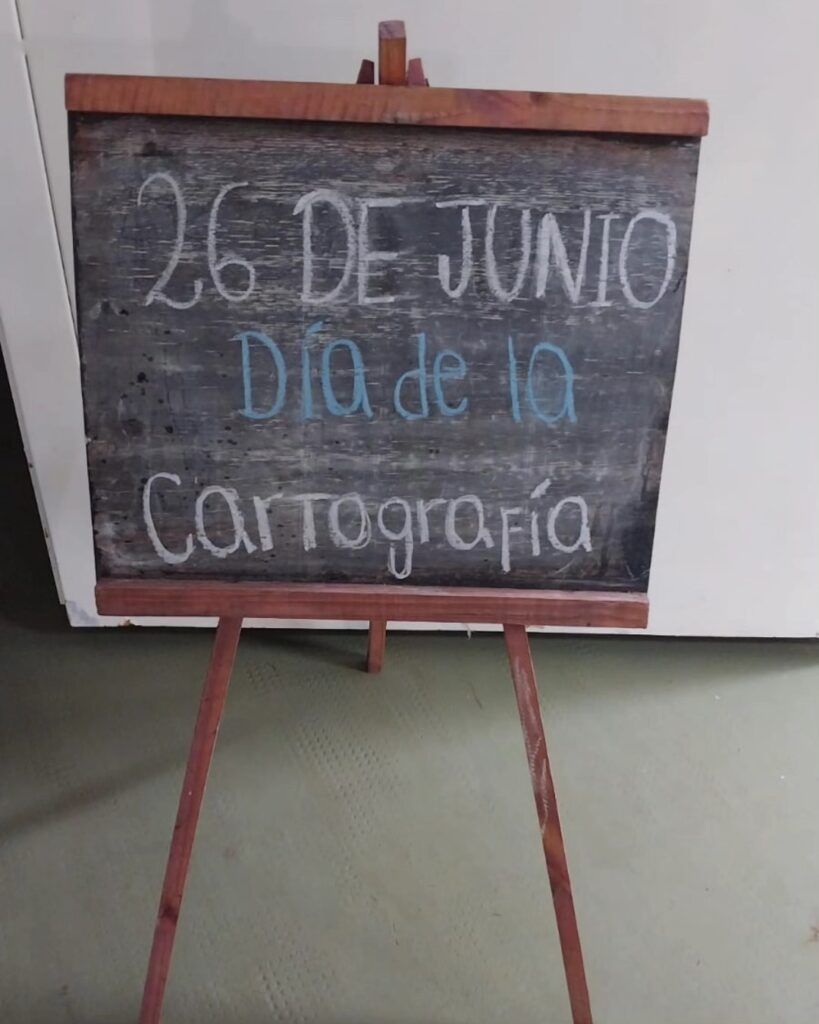 26 DE JUNIO
Día de la
Cartografía